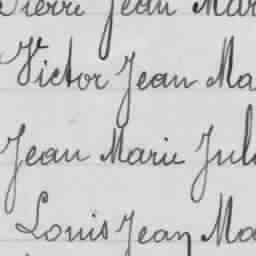 Pierre Jean Mar
Victor Jean Ma
Jean Marie Jul
Louis Jean Ma